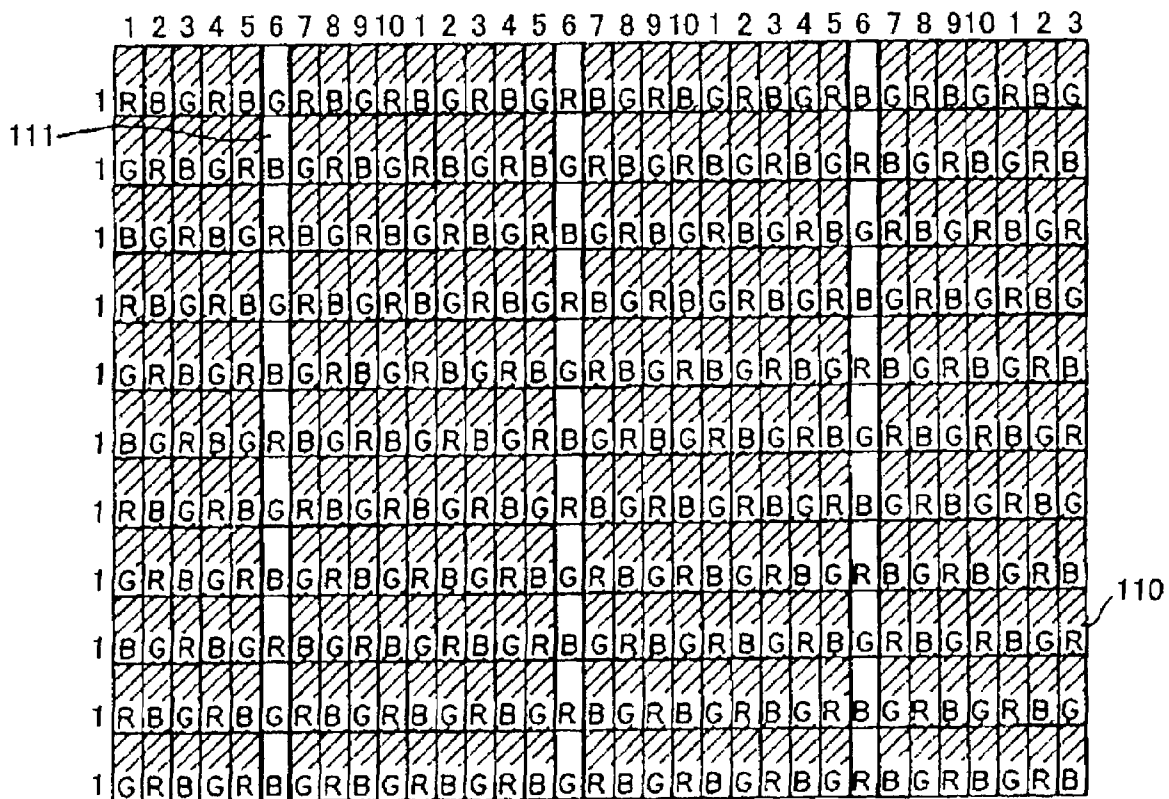 1 2 3 4 5 6 7 8 9 10 1 2 3 4 5 6 7 8 9 10 1 2 3 4 5 6 7 8 9 10 1 2 3
1 R B G R B G R B G R B G R B G R B G R B G R B G R B G R B G R B G
111
1 G R B G R B G R B G R B G R B G R B G R B G R B G R B G R B G R B
1 B G R B G R B G R B G R B G R B G R B G R B G R B G R B G R B G R
1 R B G R B G R B G R B G R B G R B G R B G R B G R B G R B G R B G
1 G R B G R B G R B G R B G R B G R B G R B G R B G R B G R B G R B
1 B G R B G R B G R B G R B G R B G R B G R B G R B G R B G R B G R
1 R B G R B G R B G R B G R B G R B G R B G R B G R B G R B G R B G
1 G R B G R B G R B G R B G R B G R B G R B G R B G R B G R B G R B
110
1 B G R B G R B G R B G R B G R B G R B G R B G R B G R B G R B G R
1 R B G R B G R B G R B G R B G R B G R B G R B G R B G R B G R B G
1 G R B G R B G R B G R B G R B G R B G R B G R B G R B G R B G R B